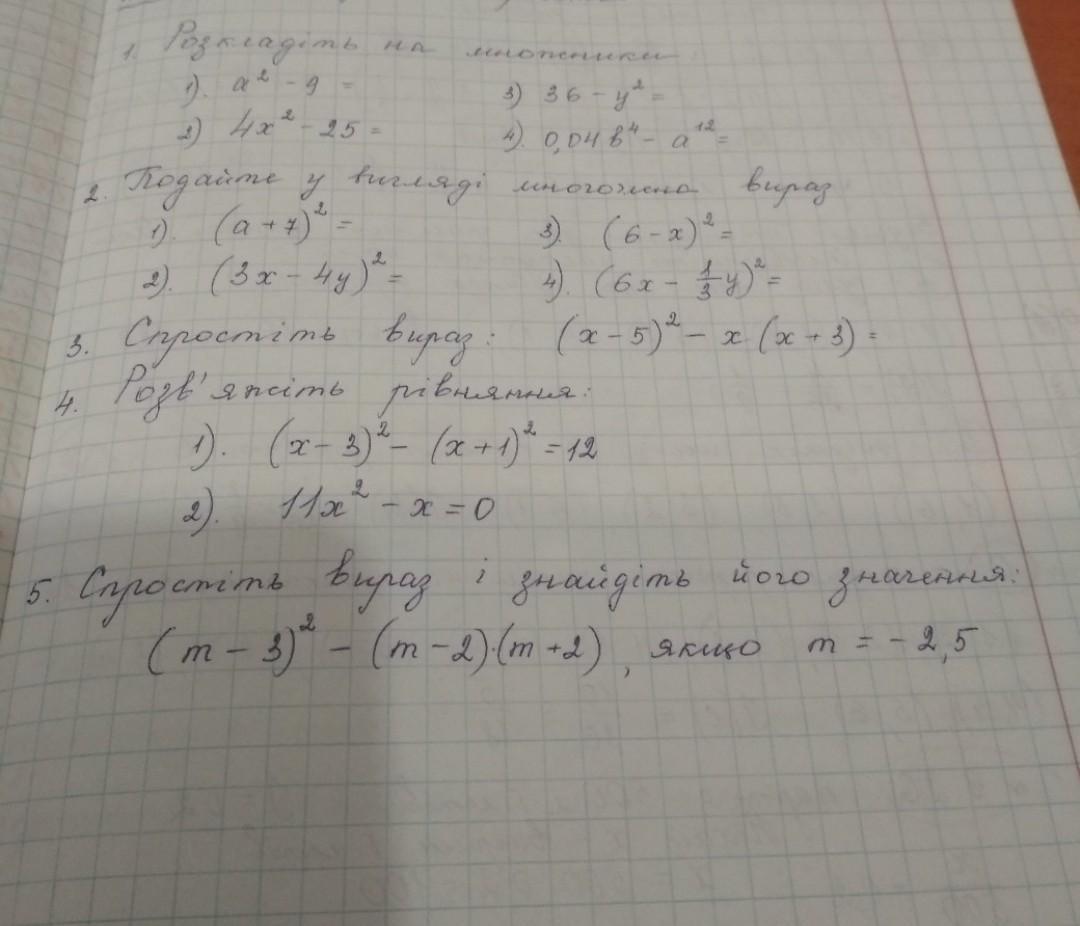 1. Розкладіть на множники
1). a² - 9 = 3) 36 - y² =
2) 4x² - 25 = 4). 0,04b⁴ - a¹² =
2. Подайте у вигляді многочлена вираз
1). (a + 7)² = 3). (6 - x)² =
2). (3x - 4y)² = 4). (6x - 1/3 y)² =
3. Спростіть вираз: (x - 5)² - x (x + 3) =
4. Розв'яжіть рівняння:
1). (x - 3)² - (x + 1)² = 12
2). 11x² - x = 0
5. Спростіть вираз і знайдіть його значення:
(m - 3)² - (m - 2)·(m + 2), якщо m = - 2,5